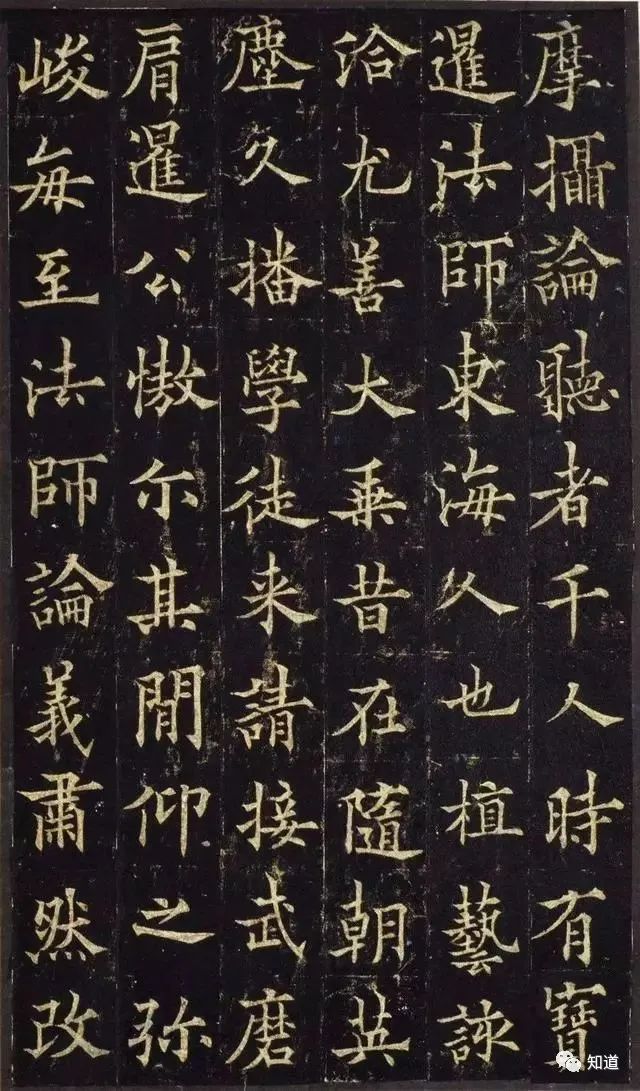 摩攝論聽者千人時有寶
暹法師東海人也植藝詠
洽尤善大乗昔在隨朝英
塵久播學徒来請接武磨
肩暹公慠尔其間仰之弥
峻每至法師論義肅然改
知道